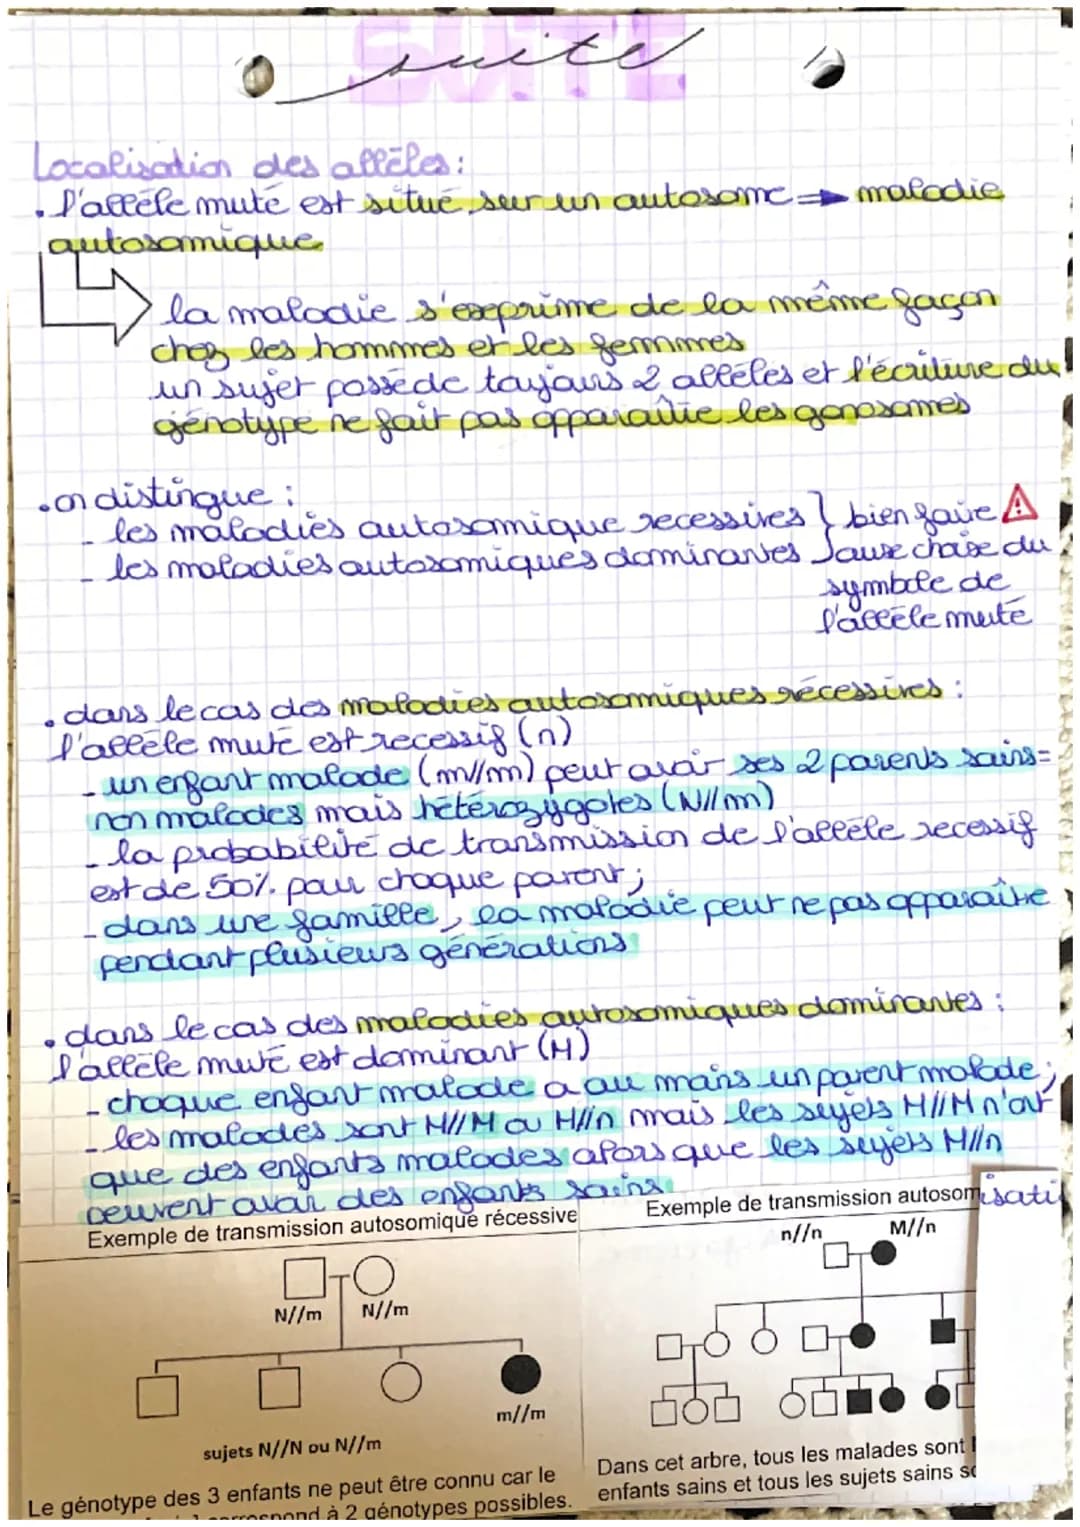 SUITE
suite
Localisation des allèles :
. l'allèle muté est situé sur un autosome ➡ maladie
autosomique
la maladie s'exprime de la même façon
chez les hommes et les femmes
un sujet possède toujours 2 allèles et l'écriture du
génotype ne fait pas apparaître les gonosomes
. on distingue :
- les maladies autosomique recessives } bien faire ⚠
- les maladies autosomiques dominantes } au choix du
symbole de
l'allèle muté
. dans le cas des maladies autosomiques récessives :
l'allèle muté est recessif (n)
- un enfant malade (m//m) peut avoir ses 2 parents sains=
non malades mais hétérozygotes (N//m)
- la probabilité de transmission de l'allèle recessif
est de 50% pour chaque parent ;
- dans une famille, la maladie peut ne pas apparaître
pendant plusieurs générations
. dans le cas des maladies autosomiques dominantes :
l'allèle muté est dominant (M)
- chaque enfant malade a au moins un parent malade ;
- les malades sont M//M ou M//n mais les sujets M//M n'ont
que des enfants malades alors que les sujets M//n
peuvent avoir des enfants sains
Exemple de transmission autosomique récessive
N//m N//m
m//m
sujets N//N ou N//m
Le génotype des 3 enfants ne peut être connu car le
à 2 génotypes possibles.
Exemple de transmission autosom
isati
n//n M//n
Dans cet arbre, tous les malades sont
enfants sains et tous les sujets sains